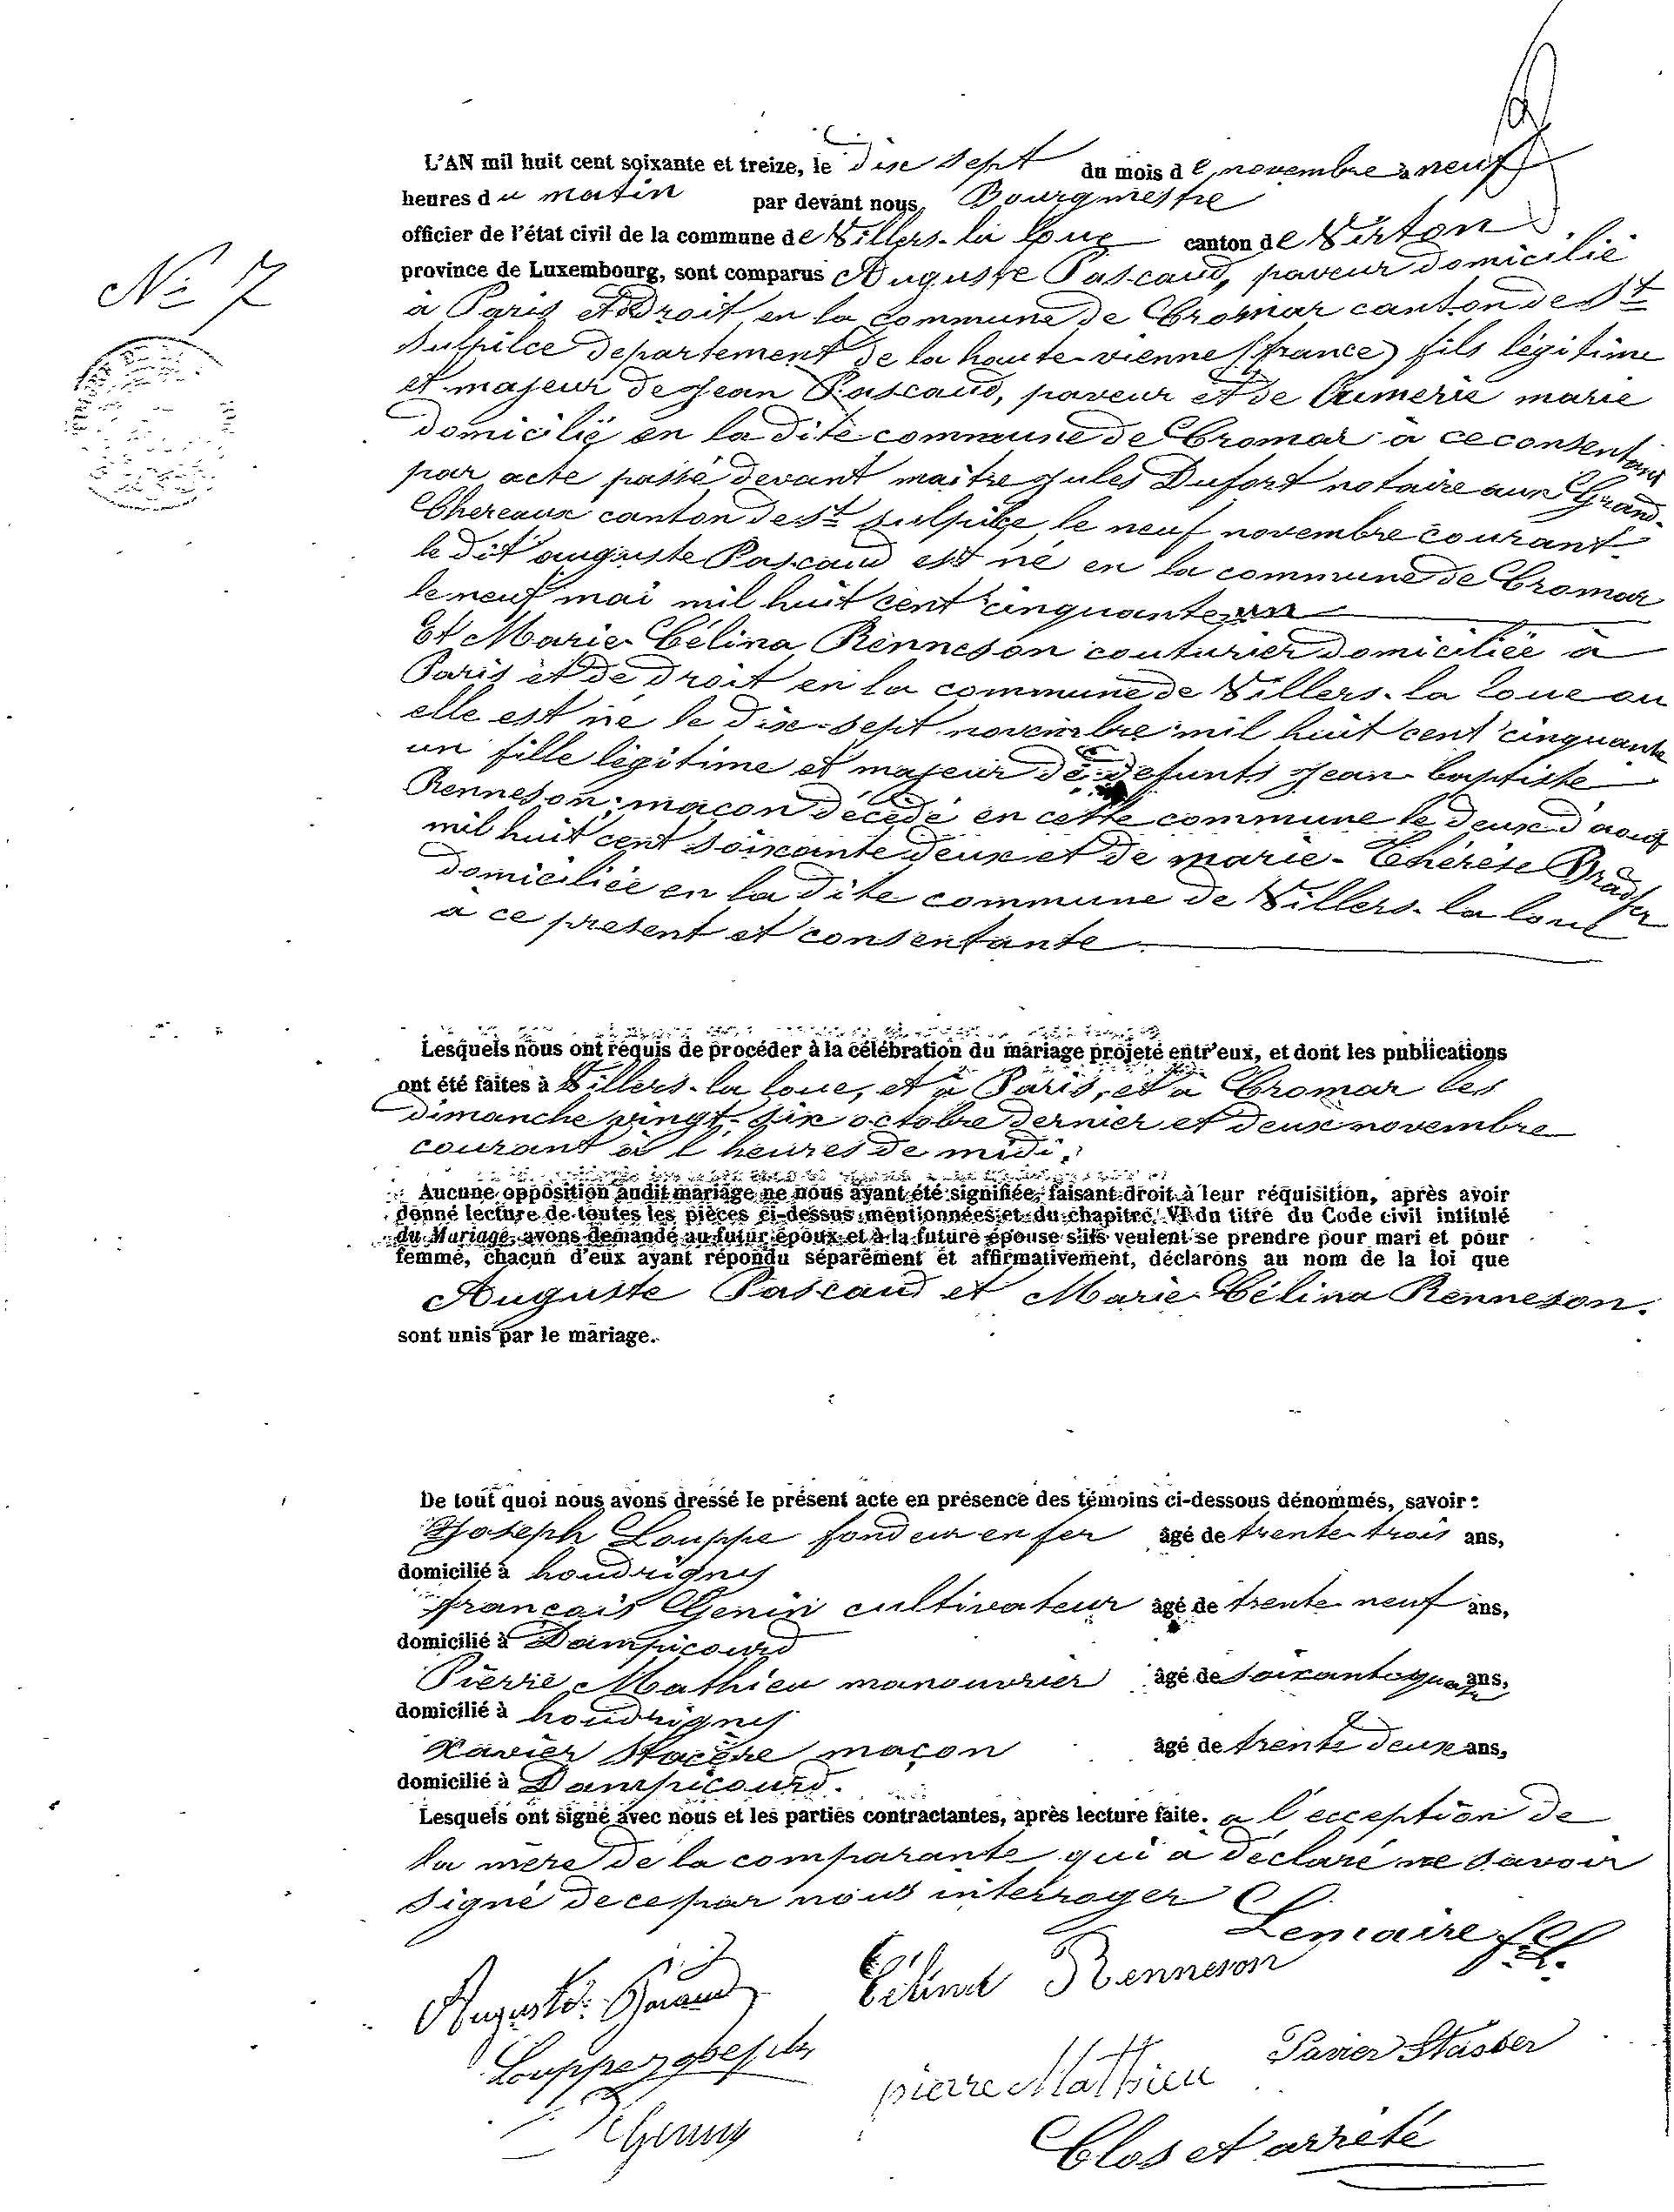 N° 7
L'AN mil huit cent soixante et treize, le dix sept du mois de novembre à neuf
heures du matin par devant nous, Bourgmestre
officier de l'état civil de la commune de Villers-la loue canton de Virton
province de Luxembourg, sont comparus Auguste Pascaud, paveur domicilié
à Paris et de droit en la commune de Cromar canton de St
Sulpilce departement de la haute-vienne (france) fils légitime
et majeur de Jean Pascaud, paveur et de Aumerie marie
domicilié en la dite commune de Cromar à ce consentant
par acte passé devant maître Jules Dufort notaire aux Grand-
Chereaux canton de St Sulpice le neuf novembre courant
le dit auguste Pascaud est né en la commune de Cromar
le neuf mai mil huit cent cinquante un
Et Marie-Célina Renneson couturier domiciliée à
Paris et de droit en la commune de Villers-la loue ou
elle est né le dix-sept novembre mil huit cent cinquante
un fille légitime et majeur de defunts Jean-baptiste
Renneson, macon décédé en cette commune le deux d'aout
mil huit cent soixante deux et de marie-Thérèse Bradfer
domiciliée en la dite commune de Villers-la loue
à ce present et consentante
Lesquels nous ont requis de procéder à la célébration du mariage projeté entr'eux, et dont les publications
ont été faites à Villers-la loue, et à Paris, et à Cromar les
dimanche vingt-six octobre dernier et deux novembre
courant à l heures de midi.
Aucune opposition audit mariage ne nous ayant été signifiée, faisant droit à leur réquisition, après avoir
donné lecture de toutes les pièces ci-dessus mentionnées et du chapitre VI du titre du Code civil intitulé
du Mariage, avons demandé au futur époux et à la future épouse s'ils veulent se prendre pour mari et pour
femme, chacun d'eux ayant répondu séparément et affirmativement, déclarons au nom de la loi que
Auguste Pascaud et Marie-Célina Renneson.
sont unis par le mariage.
De tout quoi nous avons dressé le présent acte en présence des témoins ci-dessous dénommés, savoir :
Joseph Louppe fondeur en fer âgé de trente-trois ans,
domicilié à houdrigny
francois Genin cultivateur âgé de trente neuf ans,
domicilié à Dampicourd
Pierre Mathieu manouvrier âgé de soixante quatre ans,
domicilié à houdrigny
Xavier Stacère maçon âgé de trente deux ans,
domicilié à Dampicourd.
Lesquels ont signé avec nous et les parties contractantes, après lecture faite. a l'ecception de
la mère de la comparante qui à déclaré ne savoir
signé de ce par nous interroger
Lemaire
Auguste Pascaud Célina Renneson
Louppe Joseph pierre Mathieu Xavier Stasser
Genin
Clos et arrêté